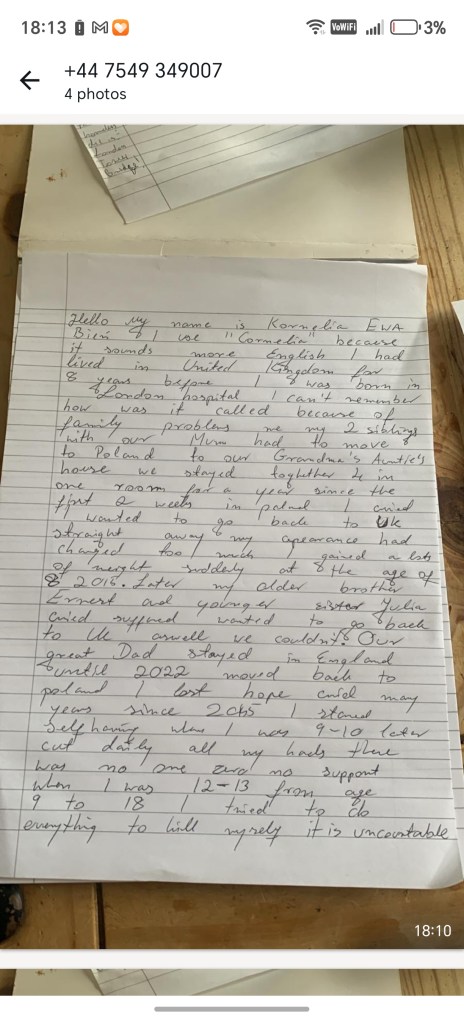 18:13
VoWiFi
3%
+44 7549 349007
4 photos
London
Hello My name is Kornelia EWA
Bień & I use "Cornelia" because
it sounds more English I had
lived in United Kingdom for
8 years before I was born in
London hospital I can't remember
how was it called because of
family problems me my 2 siblings
with our Mum had to move
to Poland to our Grandma's Auntie's
house we stayed toghether in
one room for a year since the
first 2 weeks in poland I cried
wanted to go back to UK
straight away my apearance had
changed too much I gained a lots
of weight suddely at the age of
8 2015. Later my older brother
Ernest and younger sister Julia
cried suffured wanted to go back
to Uk aswell we couldn't. Our
great Dad stayed in England
until 2022 moved back to
poland I lost hope cried many
years since 2015 I stared
selfharing when I was 9-10 later
cut daily all my hads there
was no one and no support
when I was 12-13 from age
9 to 18 I tried to do
everything to kill myself it is uncountable
18:10